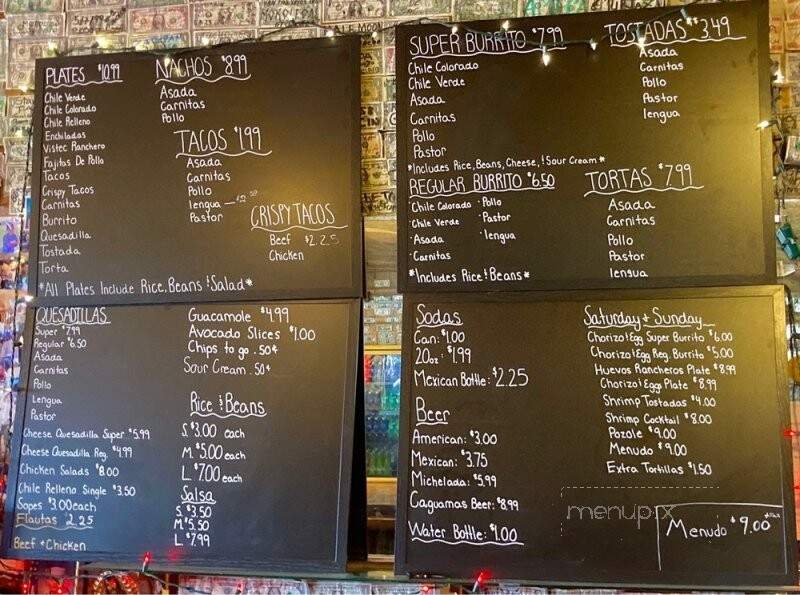 PLATES $10.99
Chile Verde
Chile Colorado
Chile Relleno
Enchiladas
Vistec Ranchero
Fajitas De Pollo
Tacos
Crispy Tacos
Carnitas
Burrito
Quesadilla
Tostada
Torta
*All Plates Include Rice, Beans & Salad*
NACHOS $8.99
Asada
Carnitas
Pollo
TACOS $1.99
Asada
Carnitas
Pollo
lengua
Pastor
CRISPY TACOS
Beef $2.25
Chicken
SUPER BURRITO $7.99
Chile Colorado
Chile Verde
Asada
Carnitas
Pollo
Pastor
*Includes Rice, Beans, Cheese, & Sour Cream*
REGULAR BURRITO $6.50
·Chile Colorado ·Pollo
·Chile Verde ·Pastor
·Asada ·lengua
·Carnitas
*Includes Rice & Beans*
TOSTADAS $3.49
Asada
Carnitas
Pollo
Pastor
lengua
TORTAS $7.99
Asada
Carnitas
Pollo
Pastor
lengua
QUESADILLAS
Super $7.99
Regular $6.50
Asada
Carnitas
Pollo
Lengua
Pastor
Cheese Quesadilla Super $5.99
Cheese Quesadilla Reg. $4.99
Chicken Salads $8.00
Chile Relleno Single $3.50
Sopes $3.00 each
Flautas $2.25
Beef + Chicken
Guacamole $4.99
Avocado Slices $1.00
Chips to go .50¢
Sour Cream .50¢
Rice & Beans
S. $3.00 each
M. $5.00 each
L. $7.00 each
Salsa
S. $3.50
M. $5.50
L $7.99
Sodas
Can: $1.00
20oz: $1.99
Mexican Bottle: $2.25
Beer
American: $3.00
Mexican: $3.75
Michelada: $5.99
Caguamas Beer: $8.99
Water Bottle: $1.00
Saturday & Sunday
Chorizo & Egg Super Burrito $6.00
Chorizo & Egg Reg. Burrito $5.00
Huevos Rancheros Plate $8.99
Chorizo & Eggs Plate $8.99
Shrimp Tostadas $4.00
Shrimp Cocktail $8.00
Pozole $9.00
Menudo $9.00
Extra Tortillas $1.50
menupix
Menudo $9.00